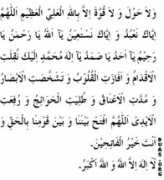 وَلَا حَوْلَ وَ لَا قُوَّةَ إِلَّا بِاللّٰهِ الْعَلِيِّ الْعَظِيْمِ اَللّٰهُمَّ
إِيَّاكَ نَعْبُدُ وَ إِيَّاكَ نَسْتَعِيْنُ يَا اَللّٰهُ يَا رَحْمٰنُ يَا
رَحِيْمُ يَا اَحَدُ يَا صَمَدُ يَا إِلٰهَ مُحَمَّدٍ إِلَيْكَ نُقِلَتِ
الْأَقْدَامُ وَ أَفْضَتِ الْقُلُوْبُ وَ شَخَصَتِ الْأَبْصَارُ
وَ مُدَّتِ الْأَعْنَاقُ وَ طُلِبَتِ الْحَوَائِجُ وَ رُفِعَتِ
الْأَيْدِى اَللّٰهُمَّ افْتَحْ بَيْنَنَا وَ بَيْنَ قَوْمِنَا بِالْحَقِّ وَ
أَنْتَ خَيْرُ الْفَاتِحِيْنَ.
لَا إِلٰهَ إِلَّا اللّٰهُ وَ اللّٰهُ أَكْبَرُ.